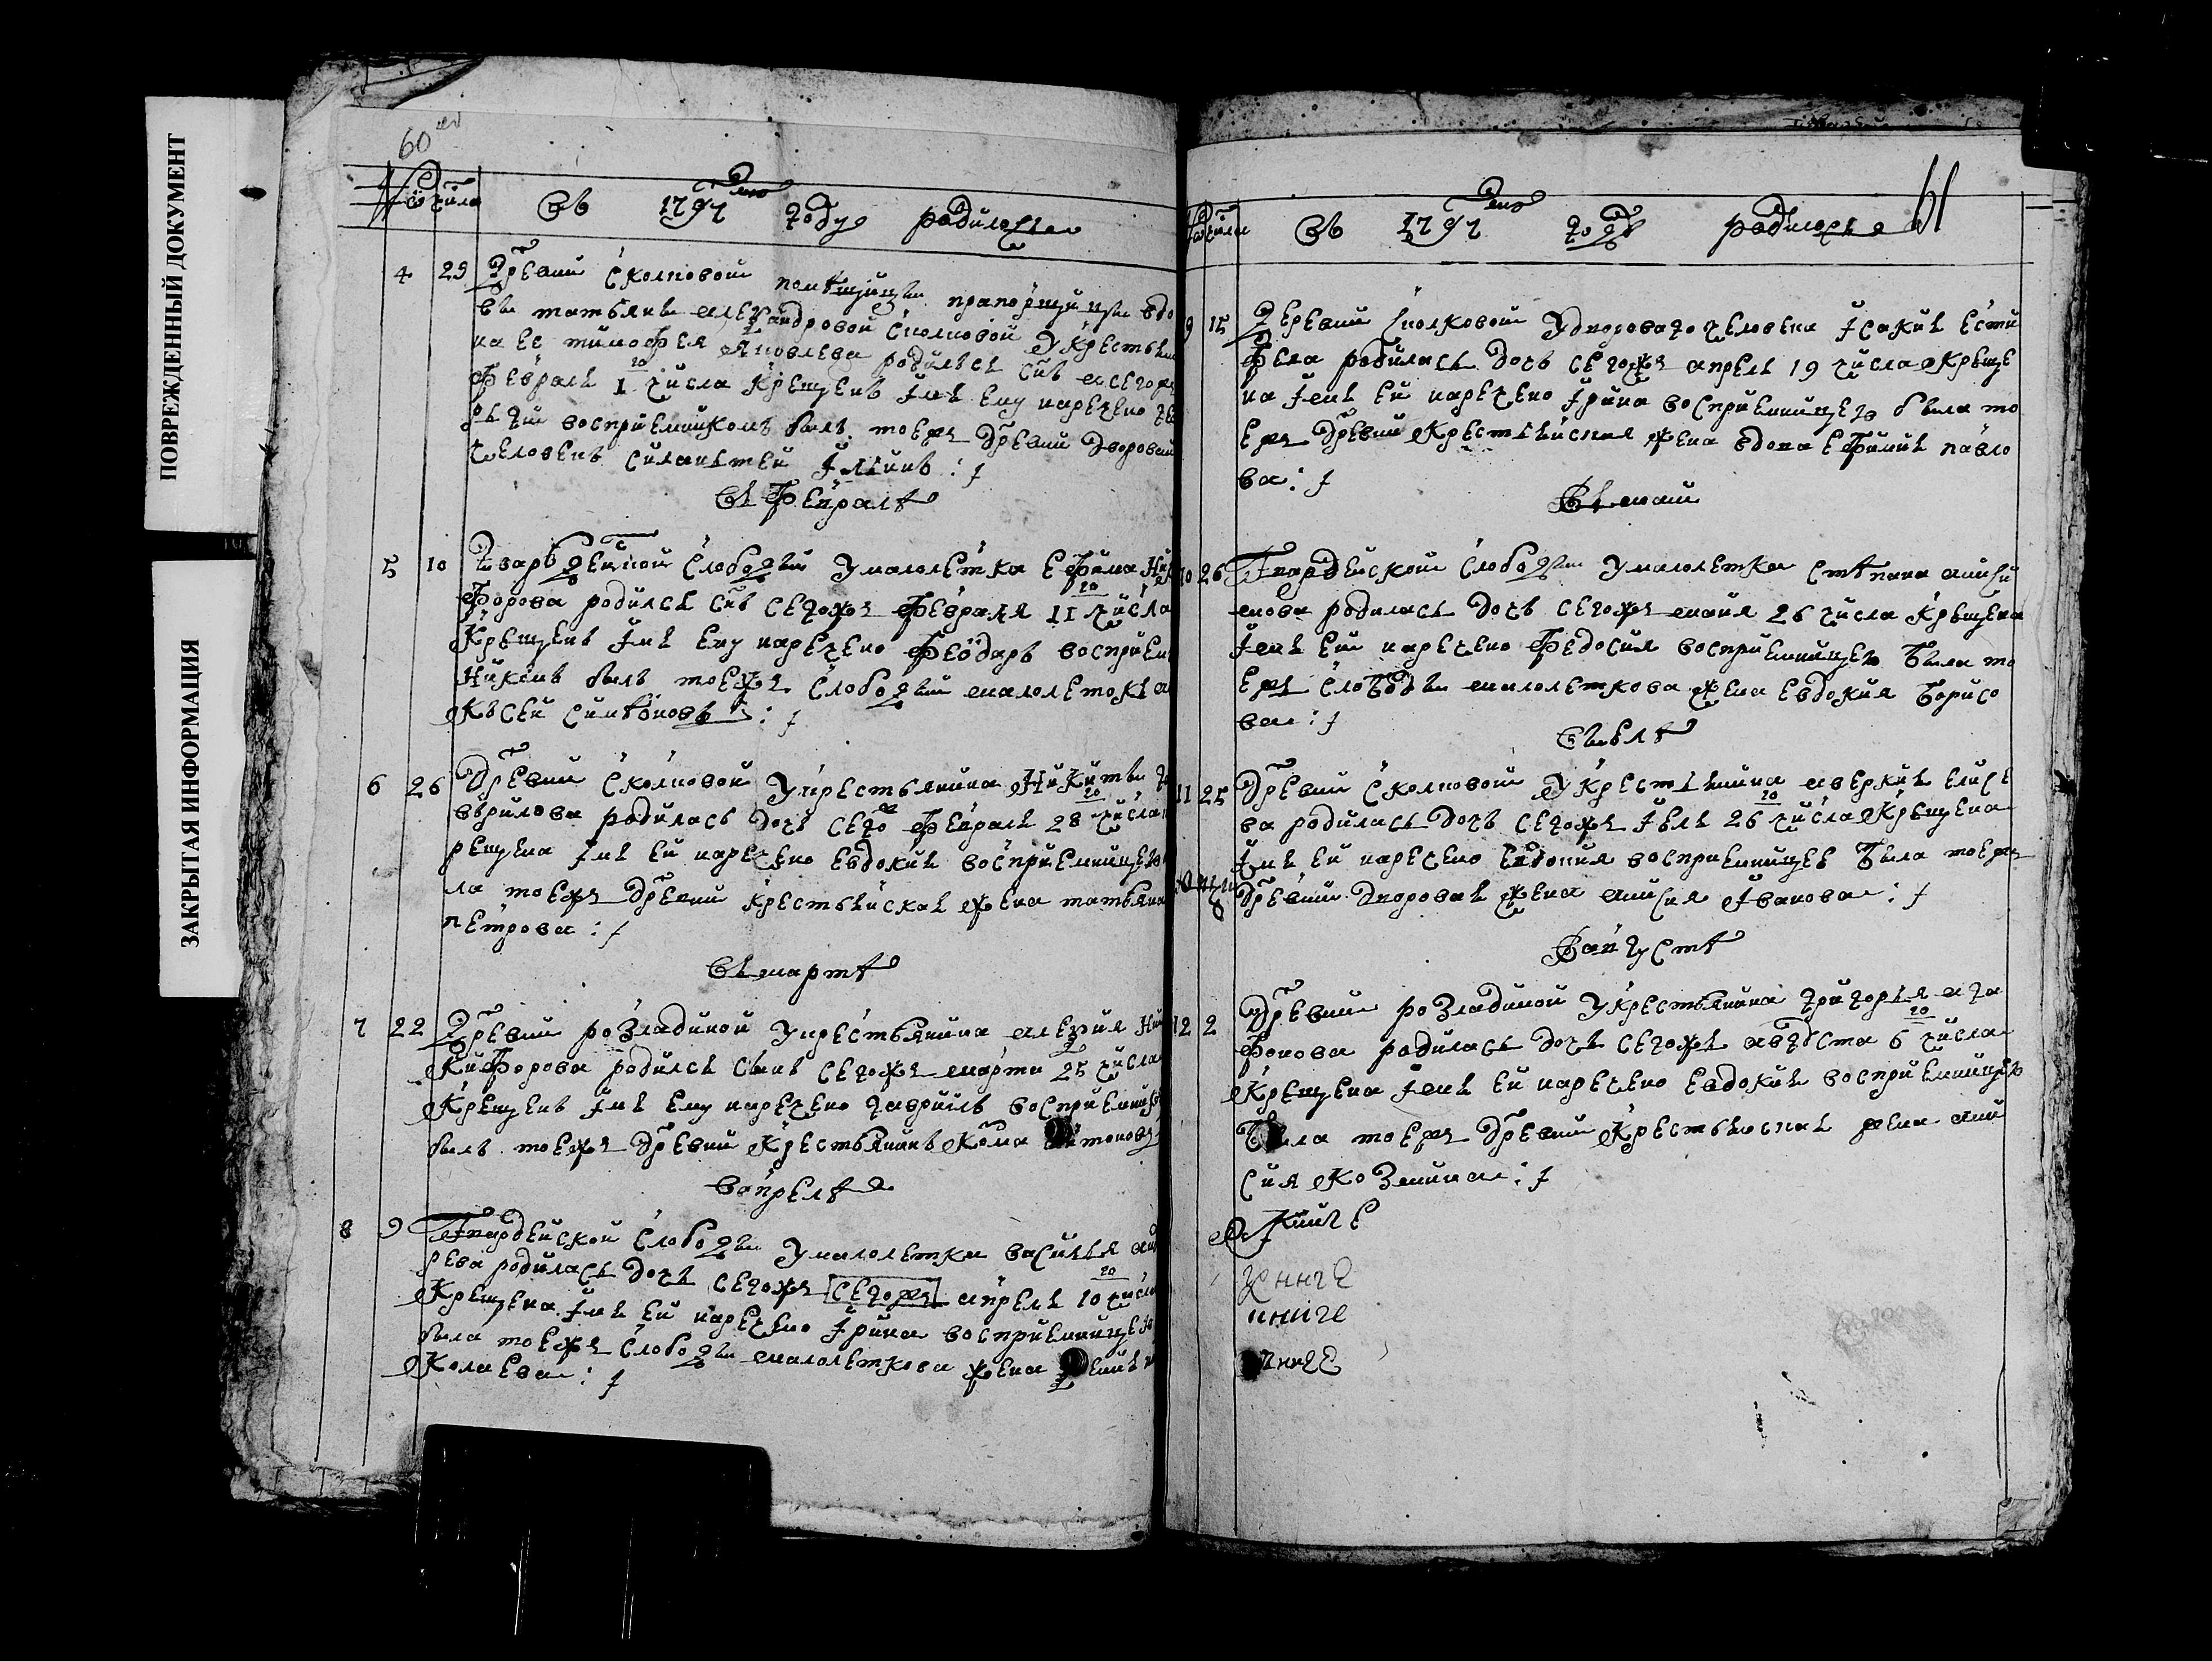 ПОВРЕЖДЕННЫЙ ДОКУМЕНТ
ЗАКРЫТАЯ ИНФОРМАЦИЯ
60
числа Въ 1797 году родилося
4 29 Дрѣвни Сколковой помѣщицы прапорщицы вдо
вы татьяны александровой Сколковой У крестьяни
на ее тимофея яковлева родилься снъ сегоже
Февраля 1 числа крещенъ Імя ему наречено
воспрiемникомъ былъ тоежя Дрѣвни Дворовои
человекъ силантей Ільинъ
въ Феврале
5 10 Гвардейской Слободы У малолетка Ефима Ни
форова родился снъ сегожя февраля 11 числа
Крещенъ Імя ему наречено Феодаръ воспрiем
никомъ былъ тоежя Слободы малолетокъ а
лексей симѣоновъ
6 26 Дрѣвни Сколковой У крестьянина Никиты га
врилова родилась дочь сего Февраля 28 числа
рещена Імя ей наречено Евдокия воспрiемницею
ла тоежя Дрѣвни крестьянская жена татьяна
петрова
въ марте
7 22 Дрѣвни розладиной У крестьянина алезия Ни
кифорова родился сынъ сегожя марта 25 числа
крещенъ Імя ему наречено гавриилъ воспрiемникъ
былъ тоежя Дрѣвни Крестьянинъ Кома
вапреле
8 9 Гвардейской Слободы У малолетка василья ан
рева родилась дочь сегожя сегожя апреля 10 числа
крещена Імя ей наречено Ірина воспрiемницею
была тоежя Слободы малолеткова жена
колаева
61
числа Въ 1797 годъ родилося
9 15 Деревни Сколковой У дворовато человека Ісакия Ести
феева родилась дочь сегожя апреля 19 числа Креще
на Імя ей наречено Ірина воспрiемницею была то
ежя Дрѣвни Крестьянская жена вдова Ефимия павло
ва
въ маи
10 26 Гвардейской Слободы У малолетка Стѣпана аниси
мова родилась дочь сегожя мaия 26 числа крещена
Імя ей наречено Федосия воспрiемницею была то
ежя Слободы малолеткова жена Евдокия борисо
ва
вывле
11 25 Дрѣвни Сколковой У крестьянина аверкия елисе
ва родилась дочь сегожя Івля 26 числа Крещена
Імя ей наречено Евдокия воспрiемницею была тоежя
Дрѣвни дворовая жена анисия Іванова
Вавгусте
12 2 Дрѣвни розладиной У крестьянина григорья ага
фонова родилась дочь сегожя августа 6 числа
Крещена Імя ей наречено Евдокия воспрiемницею
была тоежя Дрѣвни Крестьянская жена ани
сия Козмина
книге
книге
книге
книге